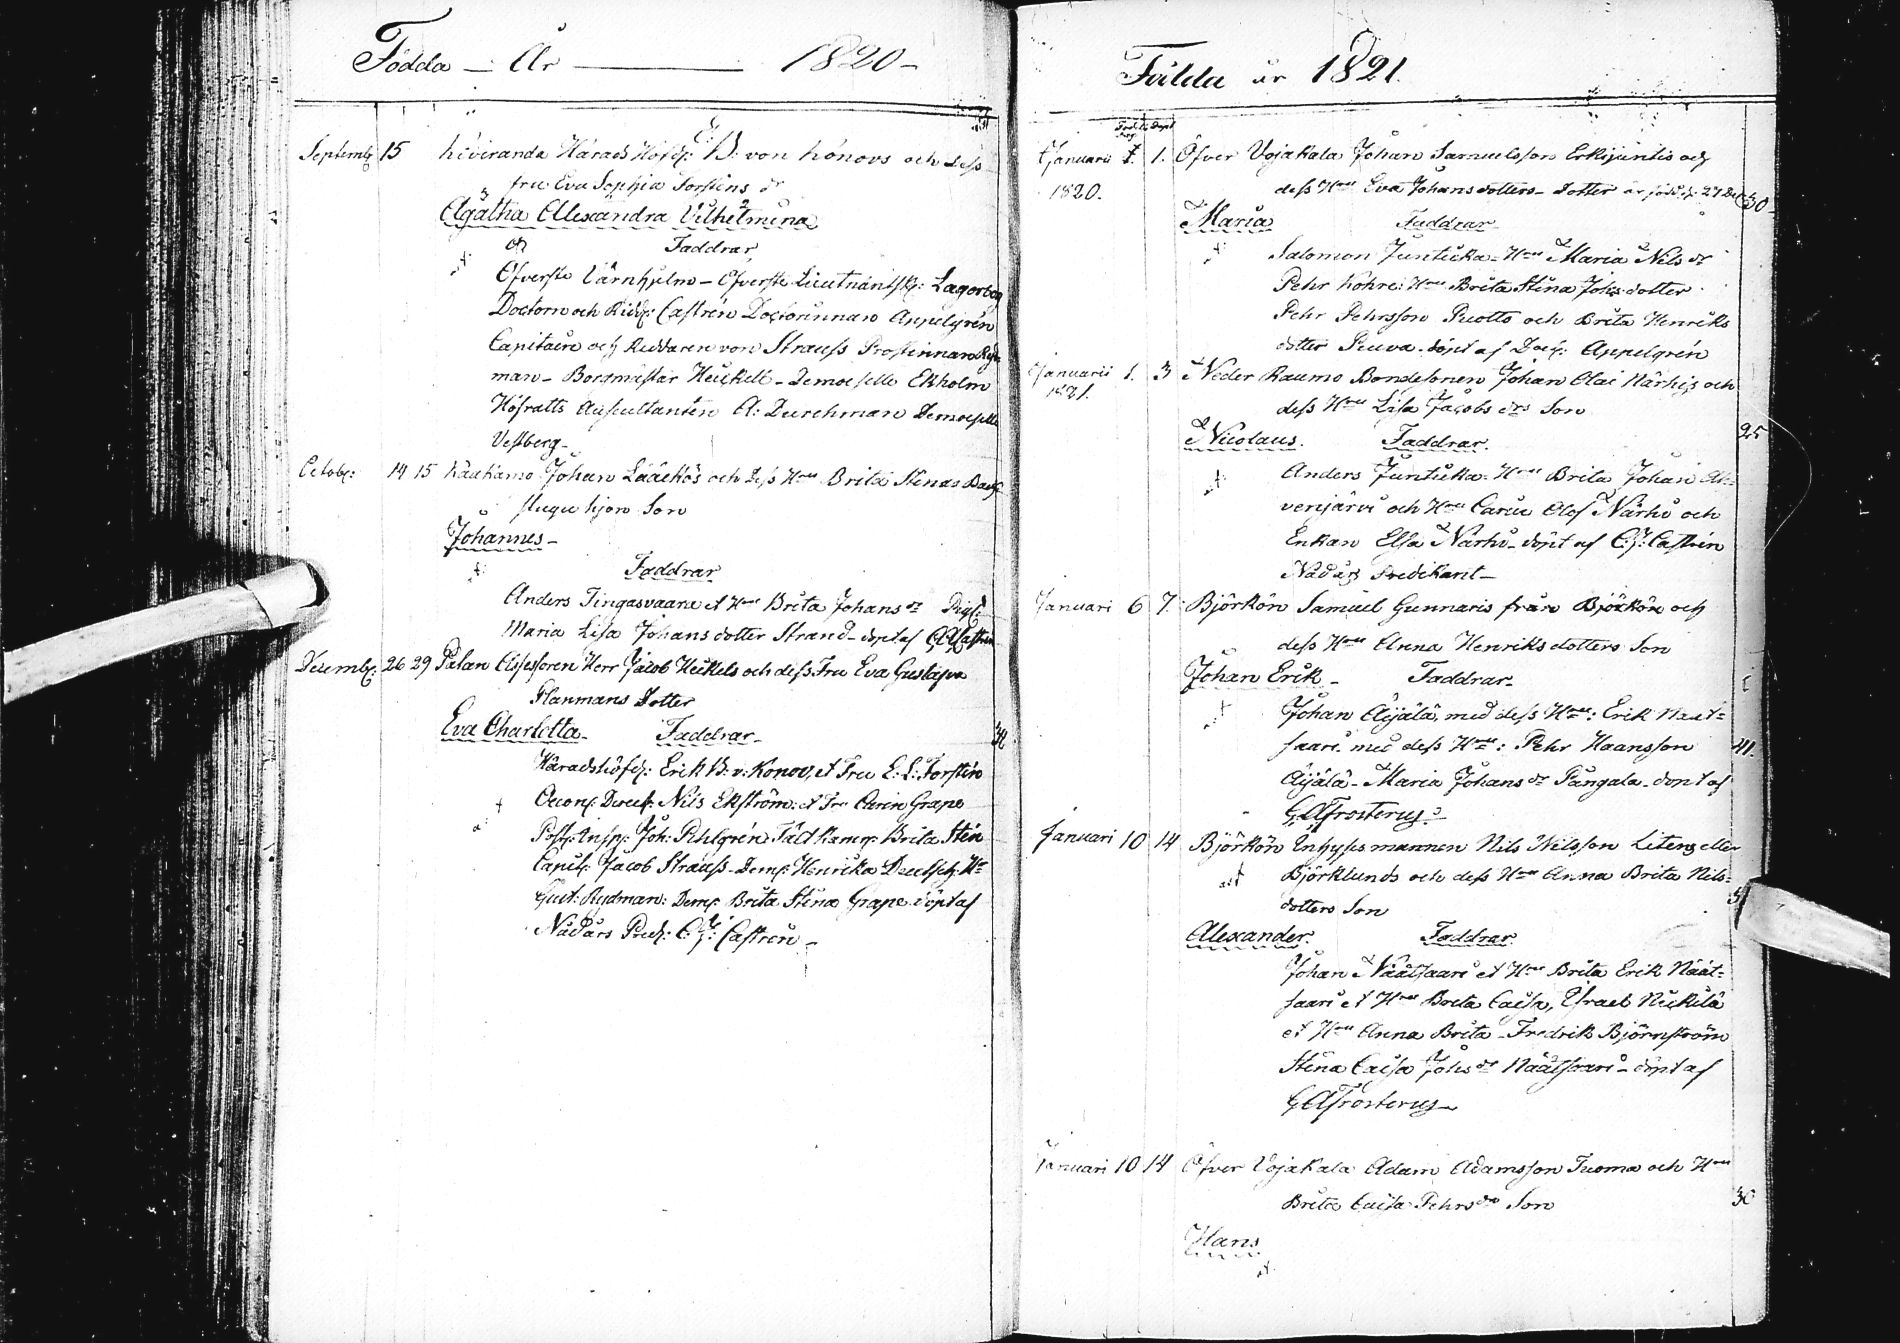 Födda – År — 1820 –
Septemb: 15 Kiviranda Härads Höfd: E: B: von Konovs och dess
fru Eva Sophia Forstens dr
Agatha Alexandra Vilhelmina
Faddrar
Öfverste Värnhjelm – Öfverste Lieutnantsk: Lagerborg
Doctorn och Ridd: Castrén Doctorinnan Appelgrén
Capitaine och Riddaren von Strauss Prostinnan Ryd-
man – Borgmästar Heickell – Demoiselle Ekholm
Hofratts Auscultanten A: Durchman Demoiselle
Vestberg –
Octob: 14 15 Kaakamo Johan Lääkkös och Dess Hu Brita Stenas
stugu hjon Son
Johannes –
Faddrar
Anders Tingasvaara et Hu Brita Johans dr Pig:
Maria Lisa Johans dotter Strand – döpt af Castrén
Decemb: 26 29 Palan Assessoren Herr Jacob Heikels och dess Fru Eva Gustava
Planmans Dotter
Eva Charlotta – Faddrar – 34
Häradshöfd: Erik B: v: Konov, et Fru E: S: Forstén
Oecon: Direct: Nils Ekström: et Fru Carin Grape
Post: Insp: Joh: Pihlgrén Fält Kamr: Brita Stén
Capit: Jacob Strauss – Dem: Henrika Deutsch: Hr
Gust: Rydman: Dem: Brita Stina Grape döpt af
Nådårs Pred: C: J: Castrén –
Födda år 1821.
Januarii 1. 1. Öfver Vojakala Johan Samuelsson Erkijuntis och
1820. dess Hu Eva Johansdotters – dotter är född d: 27 Dec 30 –
Maria Faddrar
Salomon Juntikka – Hu Maria Nils dr
Pehr Kohre: Hu Brita Stina Johs dotter
Pehr Pehrsson Puotto och Brita Henriks
dotter Peuva. döpt af Doct: Appelgrén
Januarii 1. 3 Neder Raumo Bondesonen Johan Olai Närhis och
1821. dess Hu Lisa Jacobs drs Son
Nicolaus. Faddrar. 25
Anders Juntikka – Hu Brita Johan Ah-
venjärvi och Hu Carin Olof Närhi och
Enkan Elsa Närhi – döpt af C: J: Castrén
Nådårs Predikant –
Januari 6 7. Björkön Samuel Gunnaris från Björkön och
dess Hu Anna Henriks dotters Son
Johan Erik – Faddrar –
Johan Äijälä, med dess Hu: Erik Näät-
saari med dess Hu: Pehr Haansson 41.
Äijälä – Maria Johans dr Pängala – döpt af
G. A. Frosterus
Januari 10 14 Björkön Inhyses mannen Nils Nilsson Litens eller
Björklunds och dess Hu Anna Brita Nils-
dotters Son
Alexander. Faddrar.
Johan Näätsaari et Hu Brita Erik Näät-
saari et Hu Brita Caisa, Israel Nickilä
et Hu Anna Brita – Fredrik Björnström
Stina Caisa Johs dr Näätsaari – döpt af
G. A. Frosterus –
Januari 10 14 Öfver Vojakala Adam Adamsson Tuoma och Hu
Brita Caisa Pehrs drs Son 30
Hans